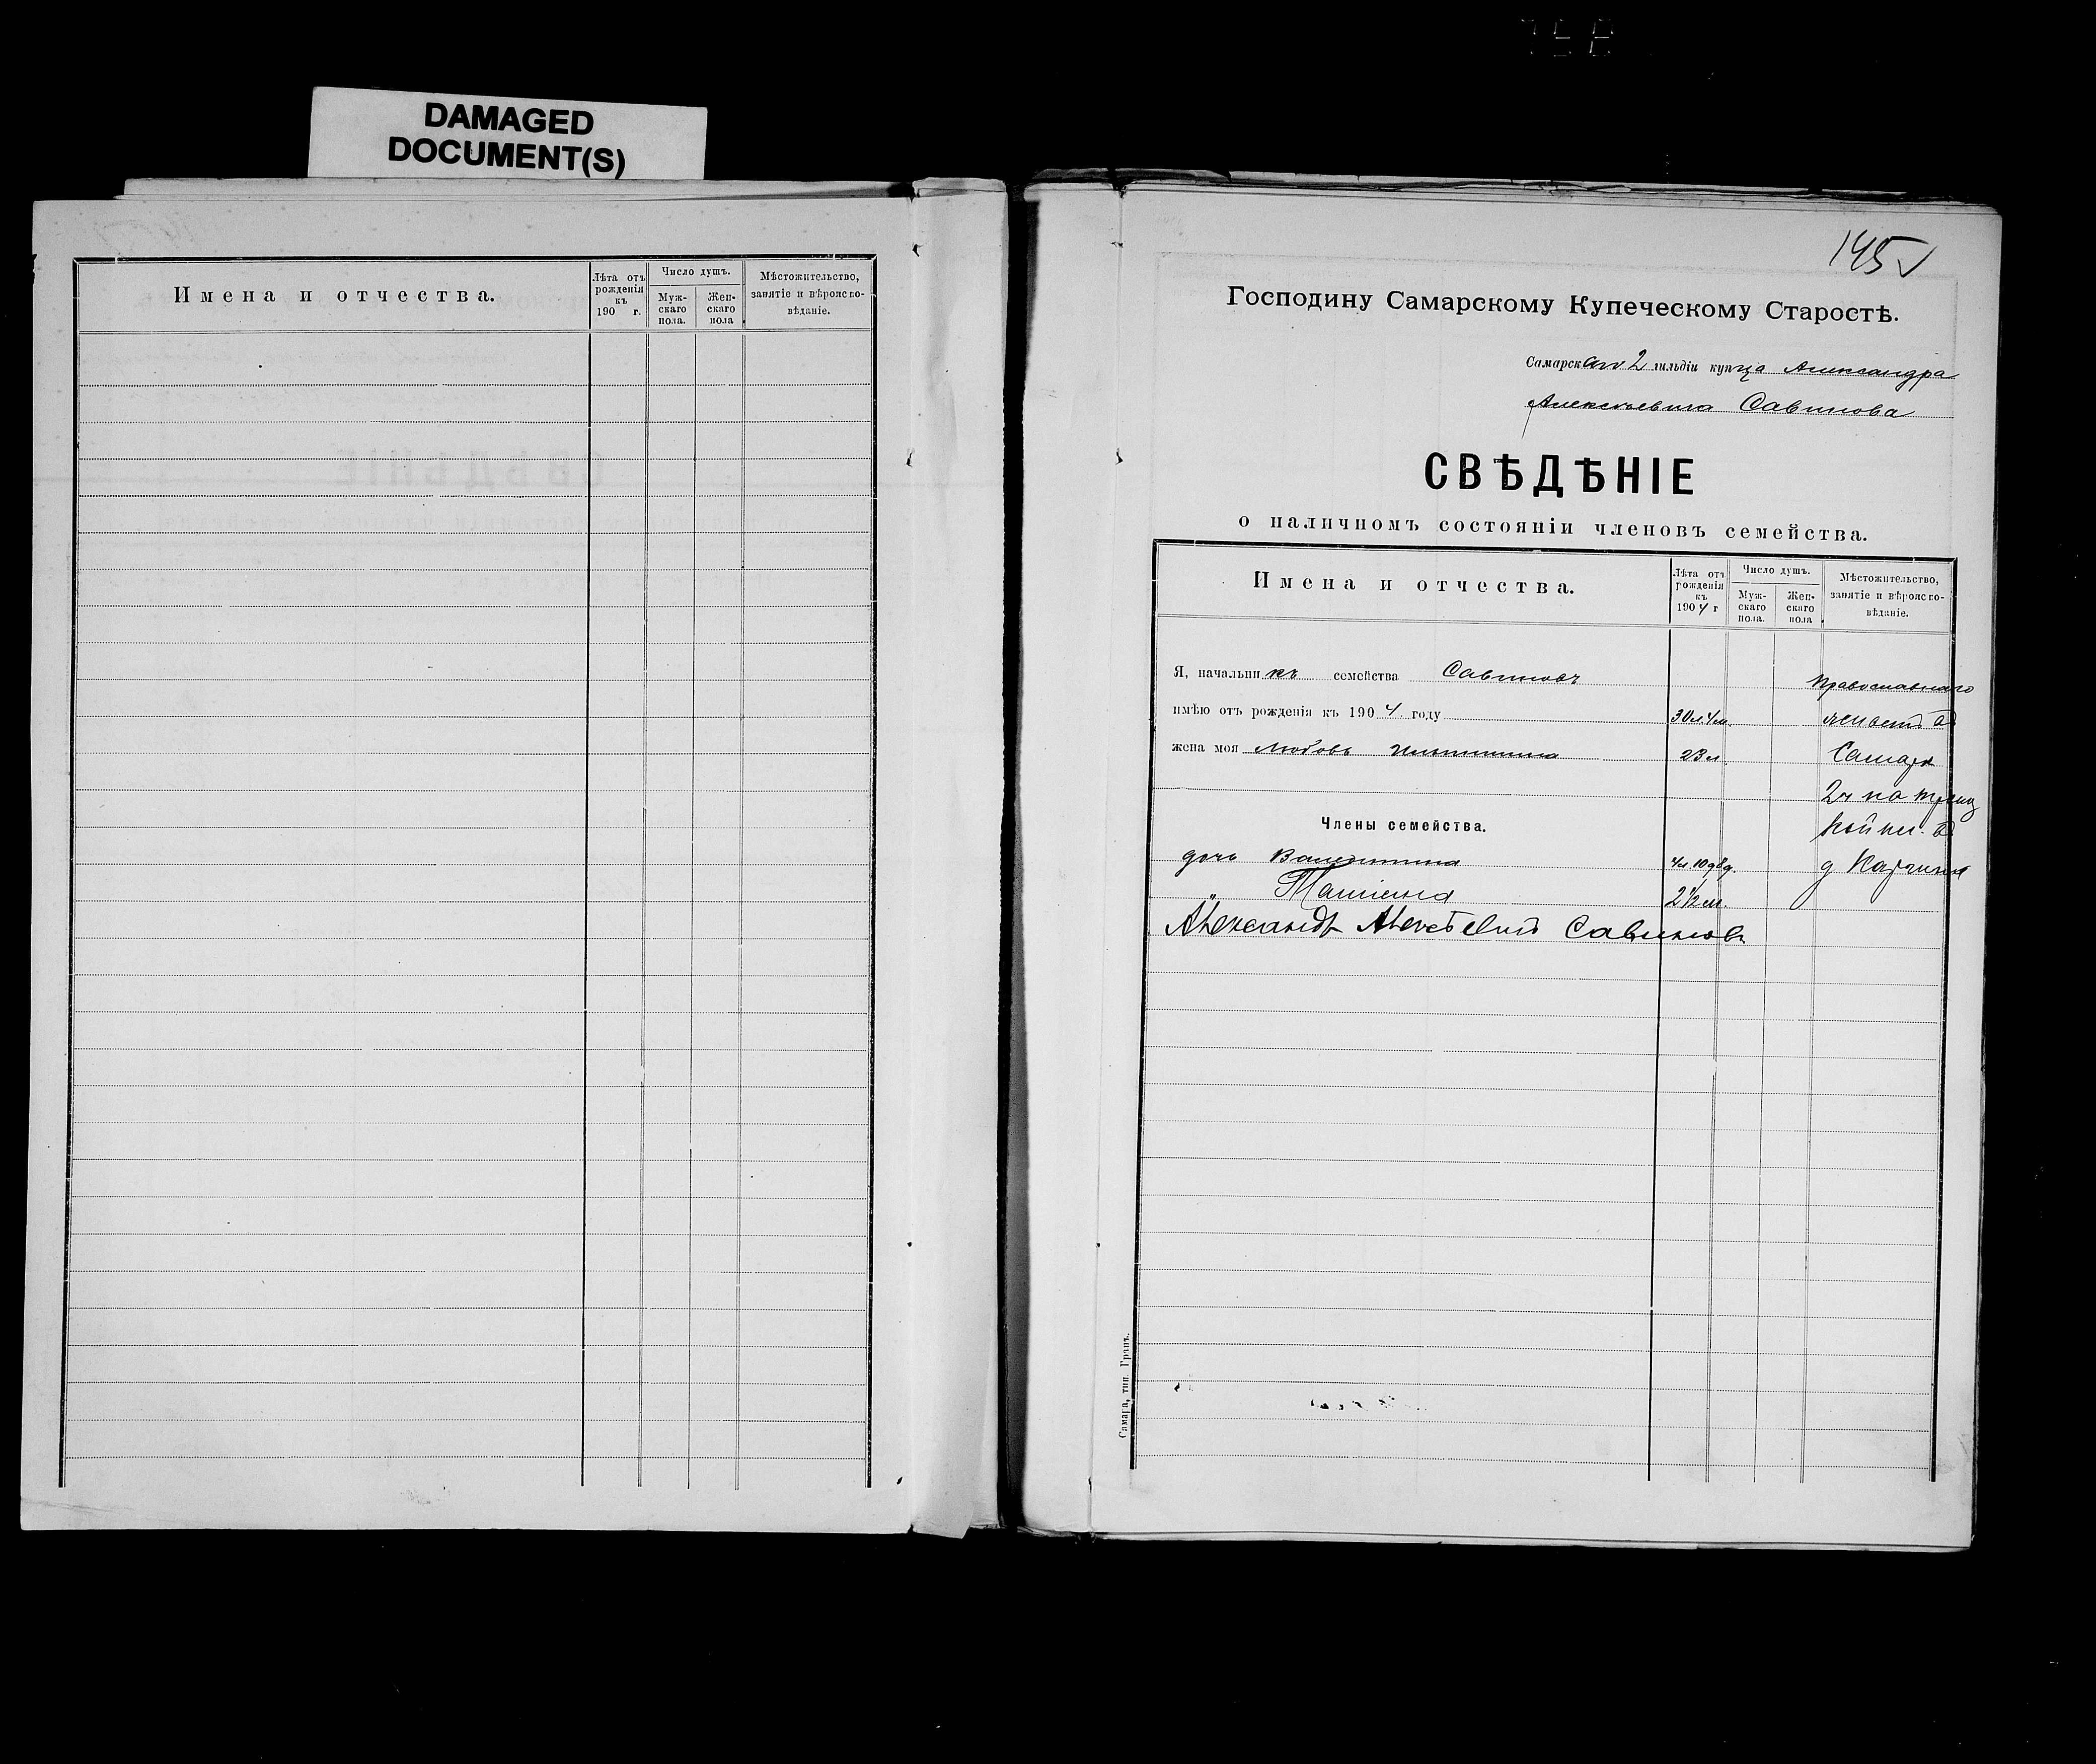 DAMAGED
DOCUMENT(S)
Имена и отчества.
Лѣта отъ рожденія къ 190 г.
Число душъ.
Муж-скаго пола.
Жен-скаго пола
Мѣстожительство, занятіе и вѣроиспо-вѣданіе.
145
Господину Самарскому Купеческому Старостѣ.
Самарскаго 2 гильдіи купца Александра
Алексѣевича Савинова
СВѢДѢНІЕ
о наличномъ состояніи членовъ семейства.
Имена и отчества.
Лѣта отъ рожденія къ 1904 г
Число душъ.
Муж-скаго пола.
Жен-скаго пола
Мѣстожительство, занятіе и вѣроиспо-вѣданіе.
Я, начальникъ семейства Савиновъ Православнаго
имѣю отъ рожденія къ 1904 году 30 л 4 м. живетъ въ
жена моя Любовь 23 л. Самарѣ
2 ч на Троиц
Члены семейства. кой ул. въ
дочь Валентина д
" Таисия 2 1/2 м.
Александръ Алексѣевичъ Савиновъ
Самара, тип. Гранъ.